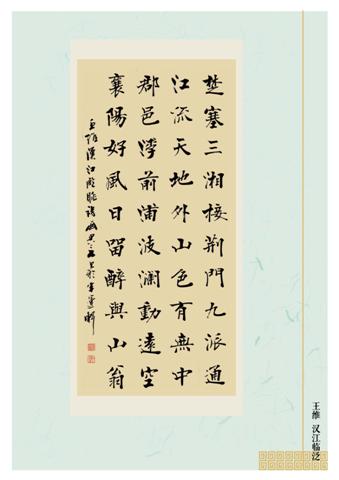 楚塞三湘接荆門九派通
江流天地外山色有無中
郡邑浮前浦波瀾動遠空
襄陽好風日留醉與山翁
王維漢江臨眺詩
王维 汉江临泛